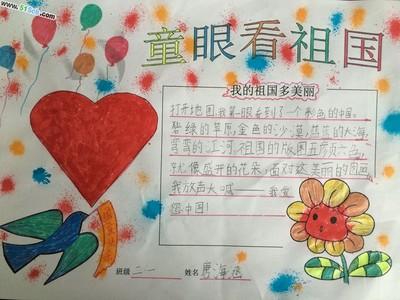 童眼看祖国
我的祖国多美丽
打开地图,我第一眼看到了一个彩色的中国。
碧绿的草原,金色的沙漠,蓝蓝的大海,
弯弯的江河,祖国的版图五颜六色,
就像盛开的花朵,面对这美丽的图画,
我放声大喊——我爱
您中国!
班级 二一 姓名